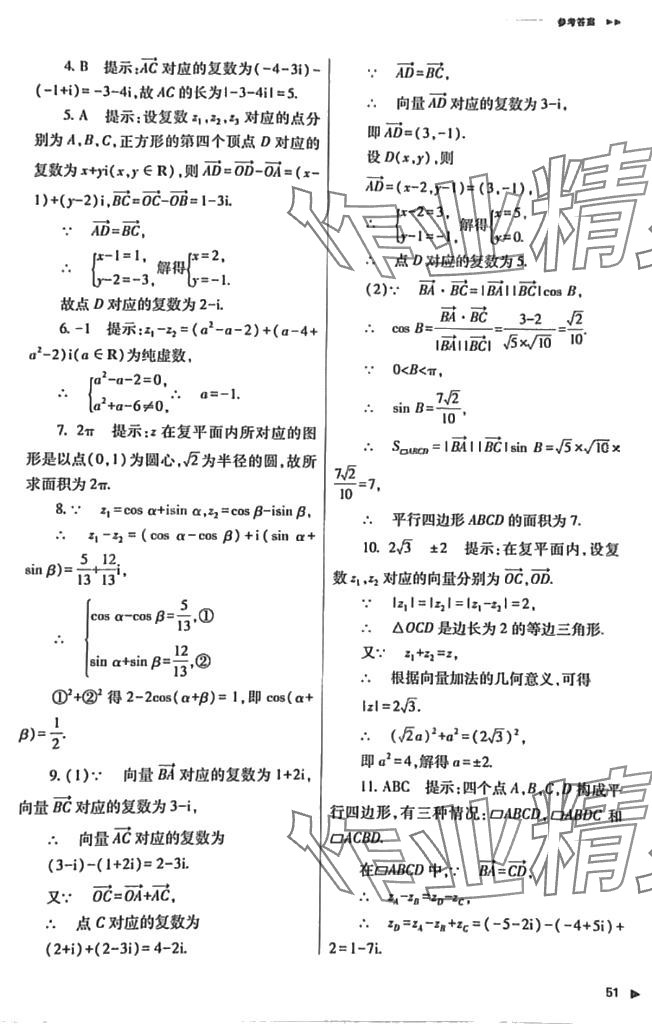 参考答案
4. B 提示:$\overrightarrow{AC}$ 对应的复数为(-4-3i)-
(-1+i)=-3-4i,故 AC 的长为|-3-4i|=5.
5. A 提示:设复数 $z_1,z_2,z_3$ 对应的点分
别为 A,B,C,正方形的第四个顶点 D 对应的
复数为 x+yi(x,y∈R),则 $\overrightarrow{AD}=\overrightarrow{OD}-\overrightarrow{OA}$=(x-
1)+(y-2)i,$\overrightarrow{BC}=\overrightarrow{OC}-\overrightarrow{OB}$=1-3i.
∵ $\overrightarrow{AD}=\overrightarrow{BC}$,
∴ $\begin{cases}x-1=1,\\y-2=-3,\end{cases}$ 解得 $\begin{cases}x=2,\\y=-1.\end{cases}$
故点 D 对应的复数为 2-i.
6. -1 提示:$z_1-z_2=(a^2-a-2)+(a-4+$
$a^2-2)i(a∈R)$为纯虚数,
∴ $\begin{cases}a^2-a-2=0,\\a^2+a-6≠0,\end{cases}$ ∴ a=-1.
7. 2π 提示:z 在复平面内所对应的图
形是以点(0,1)为圆心,$\sqrt{2}$ 为半径的圆,故所
求面积为 2π.
8. ∵ $z_1$=cos α+isin α,$z_2$=cos β-isin β,
∴ $z_1-z_2$=(cos α-cos β)+i(sin α+
sin β)=$\frac{5}{13}+\frac{12}{13}$i,
∴ $\begin{cases}\cos α-\cos β=\frac{5}{13},①\\\sin α+\sin β=\frac{12}{13},②\end{cases}$
①²+②² 得 2-2cos(α+β)=1,即 cos(α+
β)=$\frac{1}{2}$.
9. (1)∵ 向量 $\overrightarrow{BA}$ 对应的复数为 1+2i,
向量 $\overrightarrow{BC}$ 对应的复数为 3-i,
∴ 向量 $\overrightarrow{AC}$ 对应的复数为
(3-i)-(1+2i)=2-3i.
又∵ $\overrightarrow{OC}=\overrightarrow{OA}+\overrightarrow{AC}$,
∴ 点 C 对应的复数为
(2+i)+(2-3i)=4-2i.
∵ $\overrightarrow{AD}=\overrightarrow{BC}$,
∴ 向量 $\overrightarrow{AD}$ 对应的复数为 3-i,
即 $\overrightarrow{AD}$=(3,-1).
设 D(x,y),则
$\overrightarrow{AD}$=(x-2,y-1)=(3,-1),
∴ $\begin{cases}x-2=3,\\y-1=-1,\end{cases}$ 解得 $\begin{cases}x=5,\\y=0.\end{cases}$
∴ 点 D 对应的复数为 5.
(2)∵ $\overrightarrow{BA}·\overrightarrow{BC}=|\overrightarrow{BA}||\overrightarrow{BC}|$cos B,
∴ cos B=$\frac{\overrightarrow{BA}·\overrightarrow{BC}}{|\overrightarrow{BA}||\overrightarrow{BC}|}=\frac{3-2}{\sqrt{5}×\sqrt{10}}=\frac{\sqrt{2}}{10}$.
∵ 0<B<π,
∴ sin B=$\frac{7\sqrt{2}}{10}$,
∴ $S_{▱ABCD}=|\overrightarrow{BA}||\overrightarrow{BC}|$sin B=$\sqrt{5}×\sqrt{10}$×
$\frac{7\sqrt{2}}{10}$=7,
∴ 平行四边形 ABCD 的面积为 7.
10. $2\sqrt{3}$ ±2 提示:在复平面内,设复
数 $z_1,z_2$ 对应的向量分别为 $\overrightarrow{OC},\overrightarrow{OD}$.
∵ $|z_1|=|z_2|=|z_1-z_2|=2$,
∴ △OCD 是边长为 2 的等边三角形.
又∵ $z_1+z_2=z$,
∴ 根据向量加法的几何意义,可得
|z|=$2\sqrt{3}$.
∴ $(\sqrt{2}a)^2+a^2=(2\sqrt{3})^2$,
即 $a^2$=4,解得 a=±2.
11. ABC 提示:四个点 A,B,C,D 构成平
行四边形,有三种情况:▱ABCD,▱ABDC 和
▱ACBD.
在▱ABCD 中,∵ $\overrightarrow{BA}=\overrightarrow{CD}$,
∴ $z_A-z_B=z_D-z_C$,
∴ $z_D=z_A-z_B+z_C$=(-5-2i)-(-4+5i)+
2=1-7i.
作业精
作业精
51